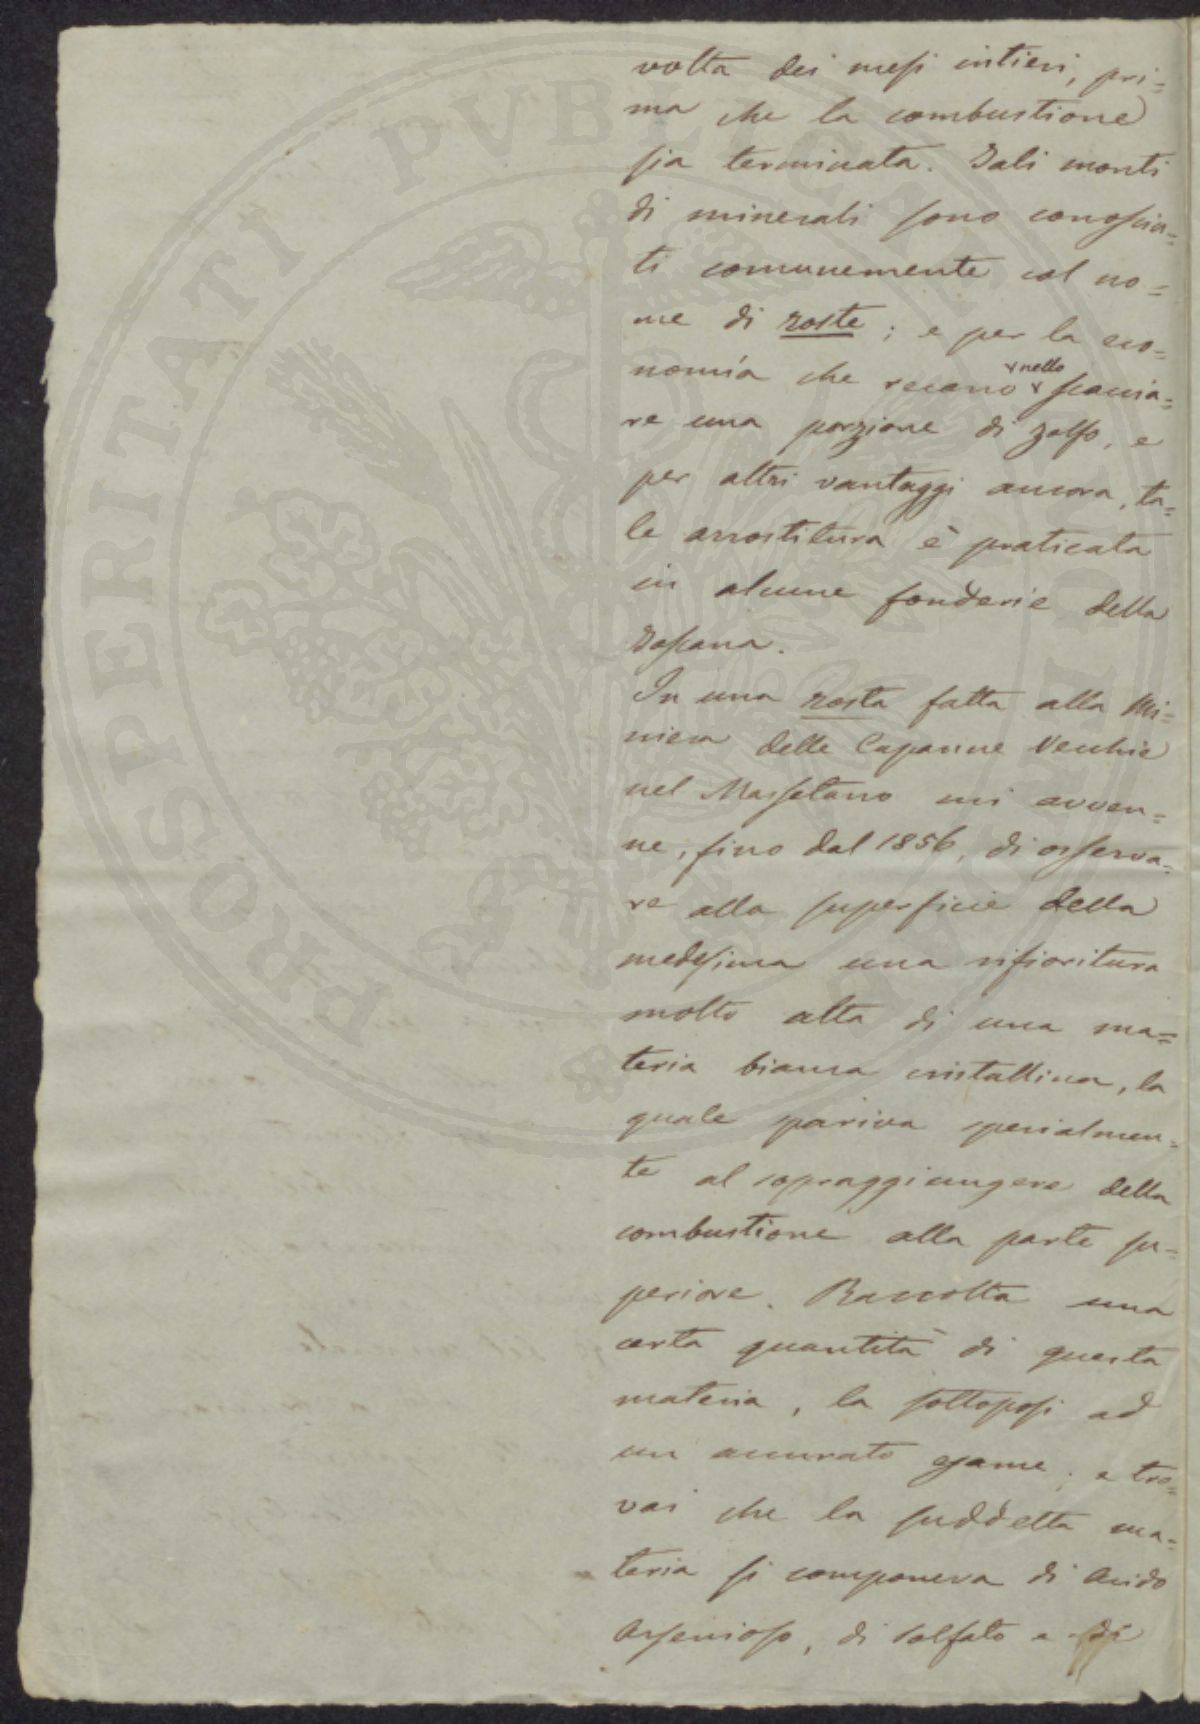 volta dei mesi intieri, pri=
ma che la combustione
sia terminata. Tali monti
di minerali sono conosciu=
ti comunemente col no=
me di roste; e per la eco=
nomía che recano nello scaccia=
re una porzione di zolfo, e
per altri vantaggi ancora, ta=
le arrostitura è praticata
in alcune fonderie della
Toscana.
In una rosta fatta alla Mi=
niera delle Capanne Vecchie
nel Massetano mi avven=
ne, fino dal 1856, di osserva=
re alla superficie della
medesima una rifioritura
molto alta di una ma=
teria bianca cristallina, la
quale pariva specialmen=
te al sopraggiungere della
combustione alla parte su=
periore. Raccolta una
certa quantità di questa
materia, la sottoposi ad
un accurato esame; e tro=
vai che la suddetta ma=
teria si componeva di Acido
Arsenioso, di solfato e di
PROSPERITATI PVBLICAE